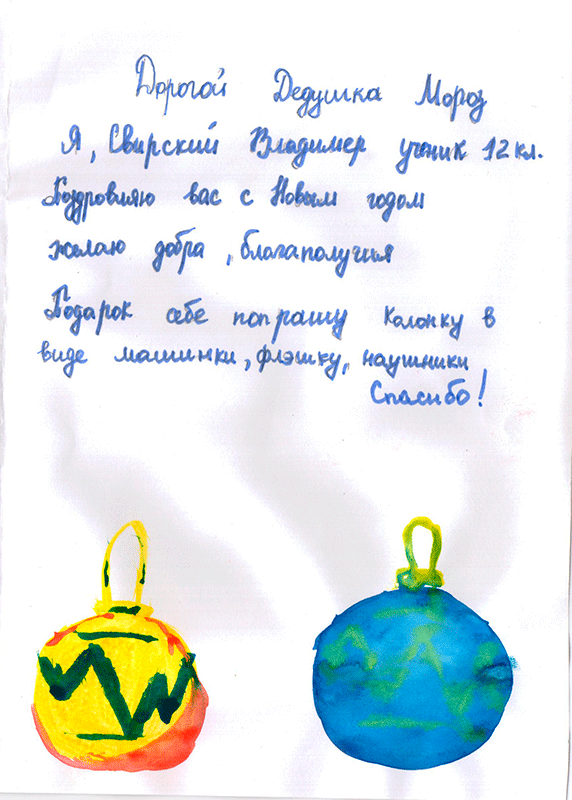 Дорогой Дедушка Мороз
Я, Свирский Владимер ученик 12 кл.
Поздровляю вас с Новым годом
желаю добра, благаполучья
Подарок себе попрашу Колонку в
виде машинки, флэшку, наушники
Спасибо!